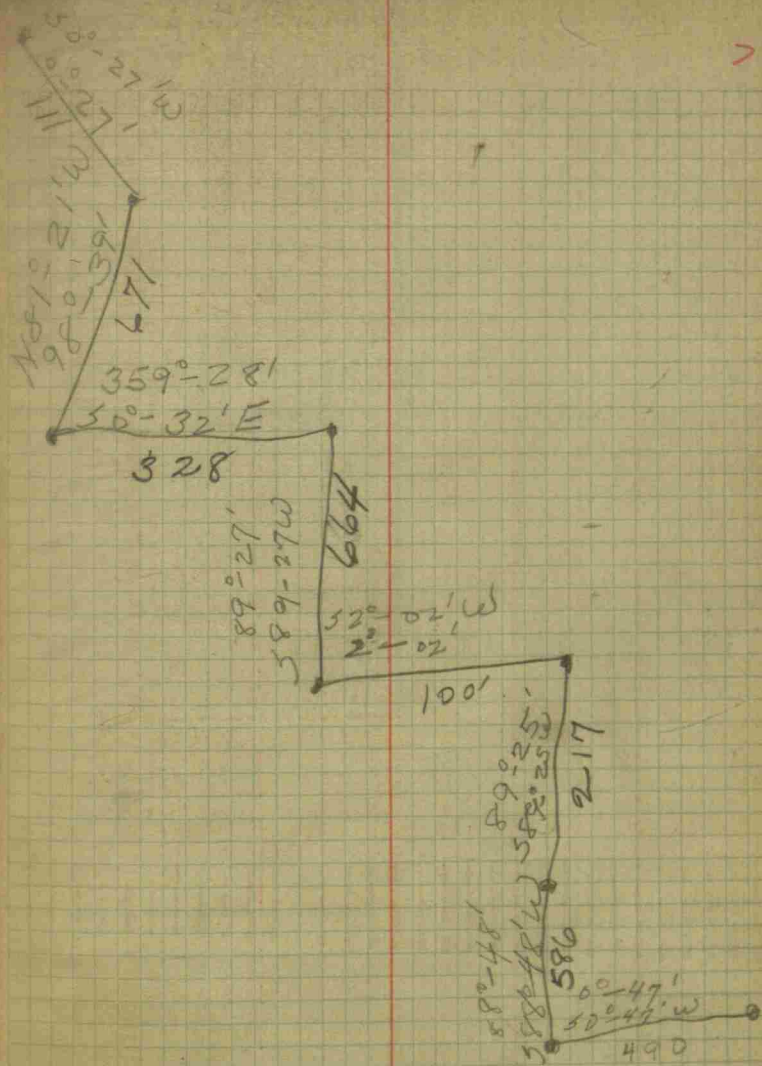 S0°-27'W
0°-27'
111
N81°-21'W
98°-39'
671
359°-28'
S0°-32'E
328
89°-27'
S89-27W
664
S2°-02'W
2°-02'
100'
89°-25'
S89°25W
217
88°-48'
S88°-48'W
586
0°-47'
S0°-47'W
490